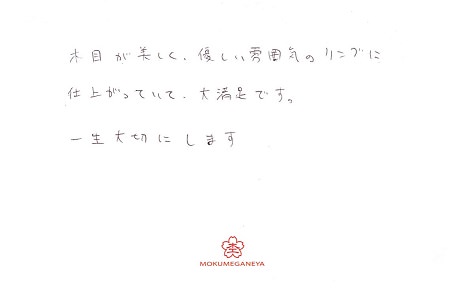 木目が美しく、優しい雰囲気のリングに
仕上がっていて、大満足です。
一生大切にします
MOKUMEGANEYA